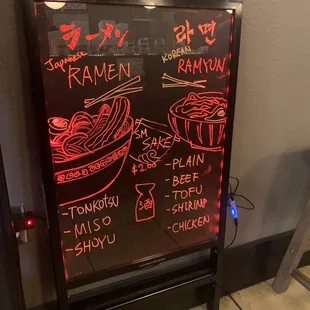 ラーメン
Japanese
RAMEN
-TONKOTSU
-MISO
-SHOYU
SM
SAKE
$2.00
酒
라면
KOREAN
RAMYUN
-PLAIN
-BEEF
-TOFU
-SHRIMP
-CHICKEN